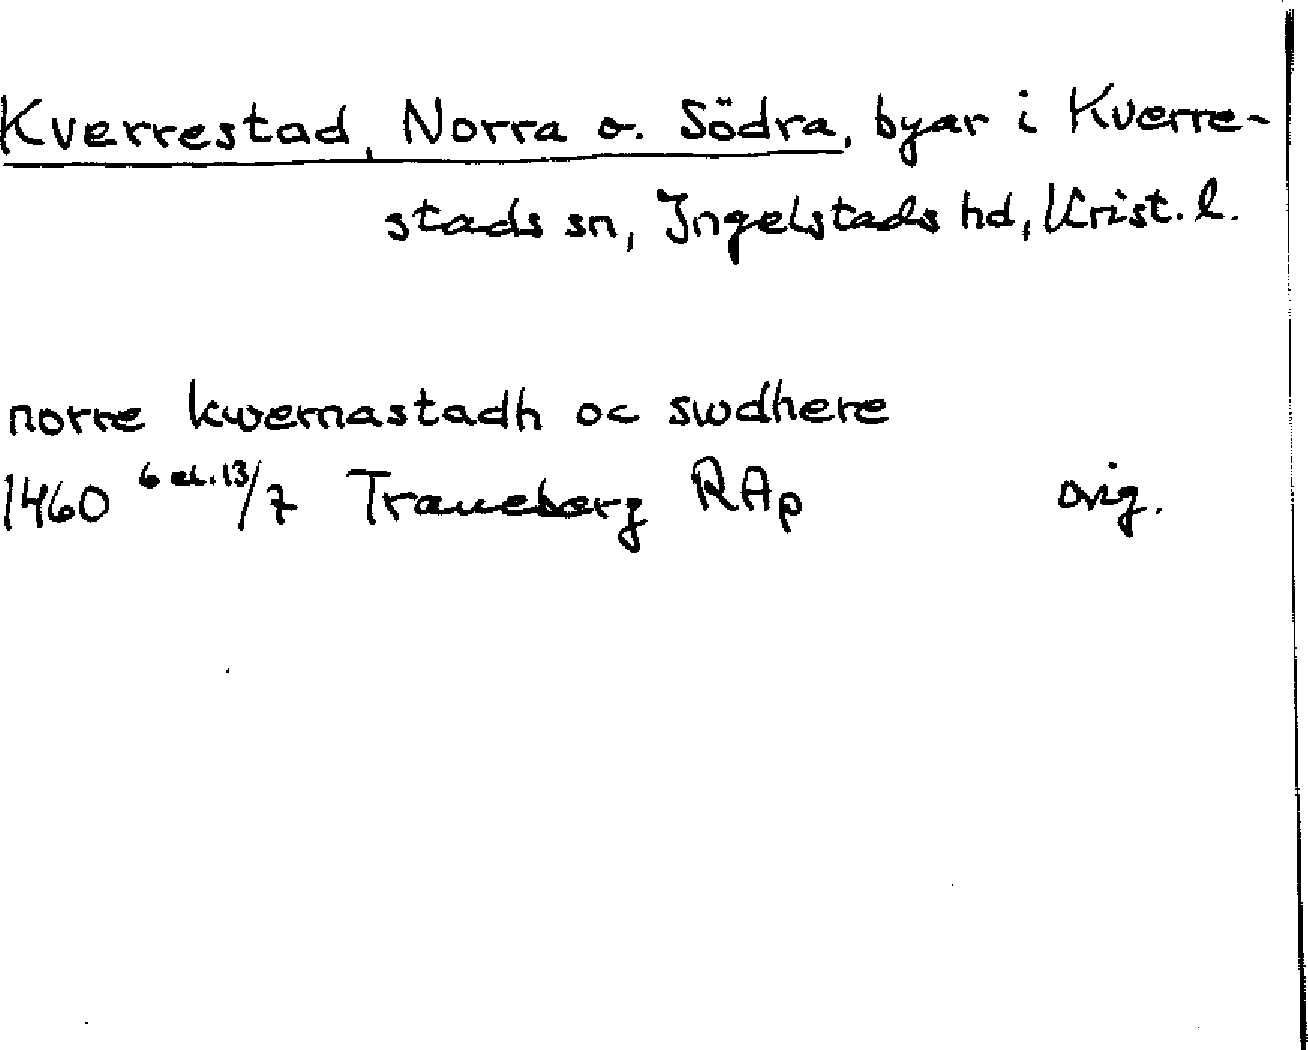 Kverrestad, Norra o. Södra, byar i Kverre-
stads sn, Ingelstads hd, Krist. l.
norre kwernastadh oc swdhere
1460 6 el. 13/7 Traneberg RAp orig.